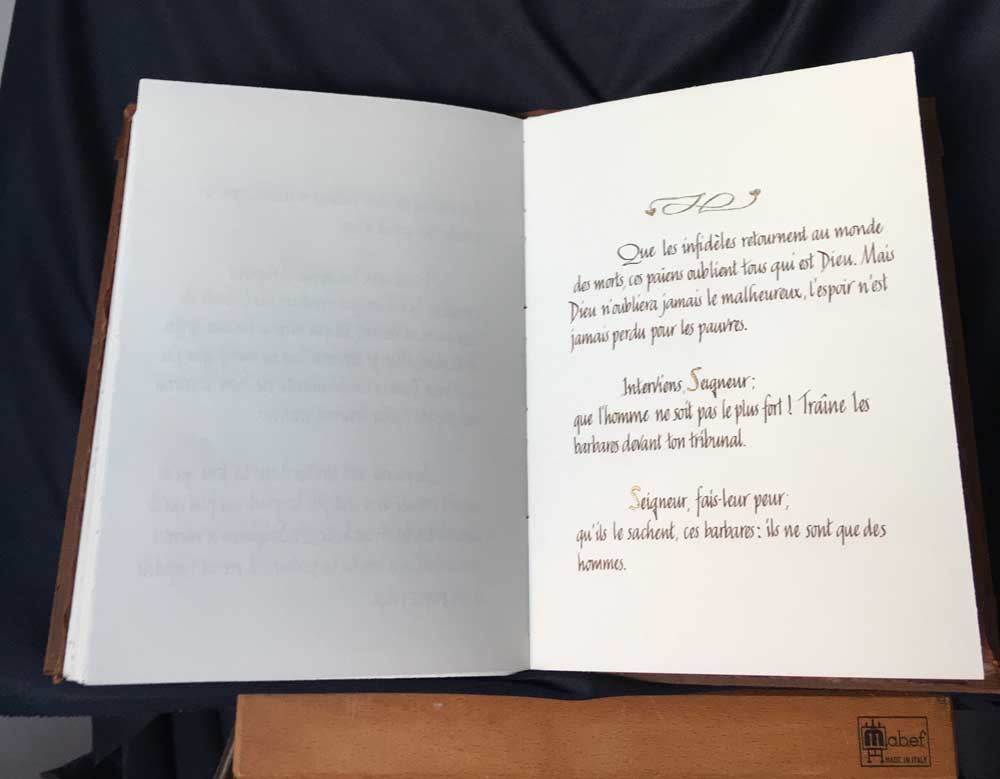 Que les infidèles retournent au monde
des morts, ces païens oublient tous qui est Dieu. Mais
Dieu n'oubliera jamais le malheureux, l'espoir n'est
jamais perdu pour les pauvres.
Interviens, Seigneur;
que l'homme ne soit pas le plus fort ! Traîne les
barbares devant ton tribunal.
Seigneur, fais-leur peur;
qu'ils le sachent, ces barbares : ils ne sont que des
hommes.
Mabef
MADE IN ITALY